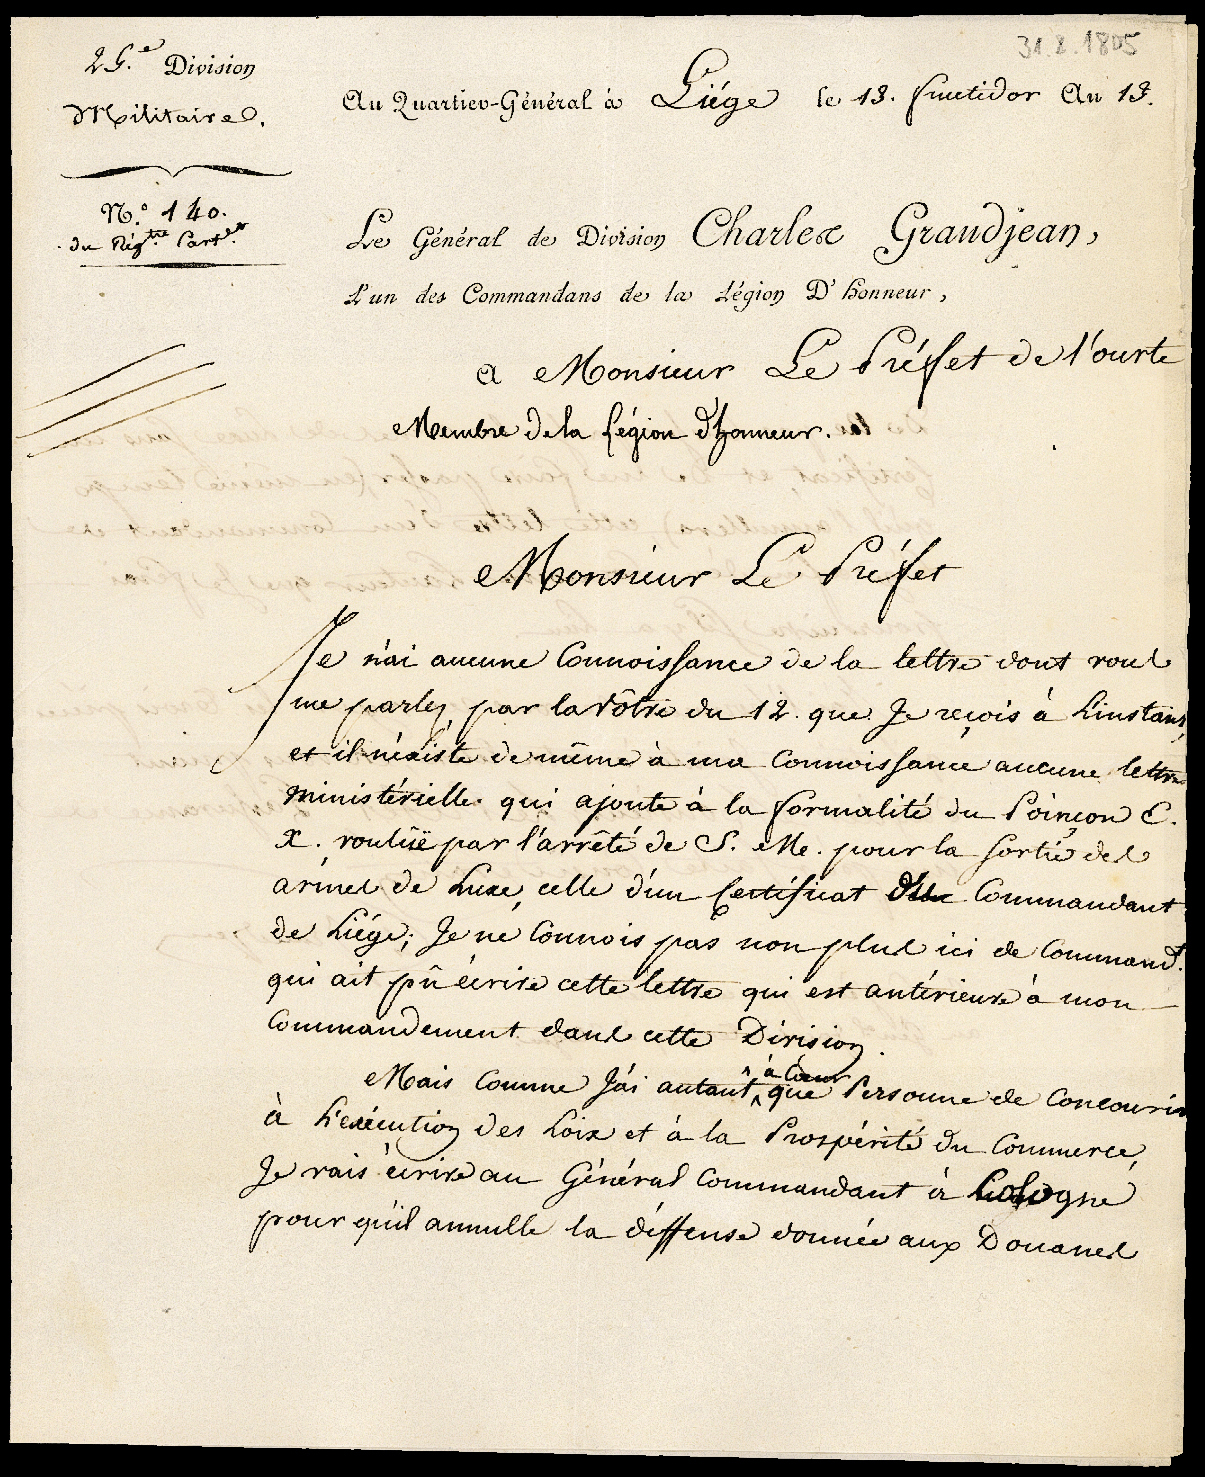 31.8.1805
25.e Division
Militaire.
Au Quartier-Général à Liége le 13. fructidor An 13.
N.o 140.
du Rég.tre Part.er
Le Général de Division Charles Grandjean,
L'un des Commandans de la Légion D'honneur,
a Monsieur Le Préfet de l'ourte
Membre de la Légion d'honneur.
Monsieur Le Préfet
Je n'ai aucune Connoissance de la lettre dont vous
me parlez, par la vôtre du 12. que Je reçois à L'instant,
et il n'éxiste de même à ma Connoissance aucune lettre
Ministérielle qui ajoute à la formalité du Poinçon E.
X. voulüe par l'arrêté de S. M. pour la sortie des
armes de Luxe, celle d'un Certificat du Commandant
de Liége; Je ne Connois pas non plus ici de Command.t
qui ait pû écrire cette lettre qui est antérieure à mon
Commandement dans cette Division.
Mais Comme J'ai autant à Cœur que Personne de Concourir
à L'exécution des Loix et à la Prospérité du Commerce,
Je vais écrire au Général Commandant à Cologne
pour qu'il annulle la déffense donnée aux Douanes